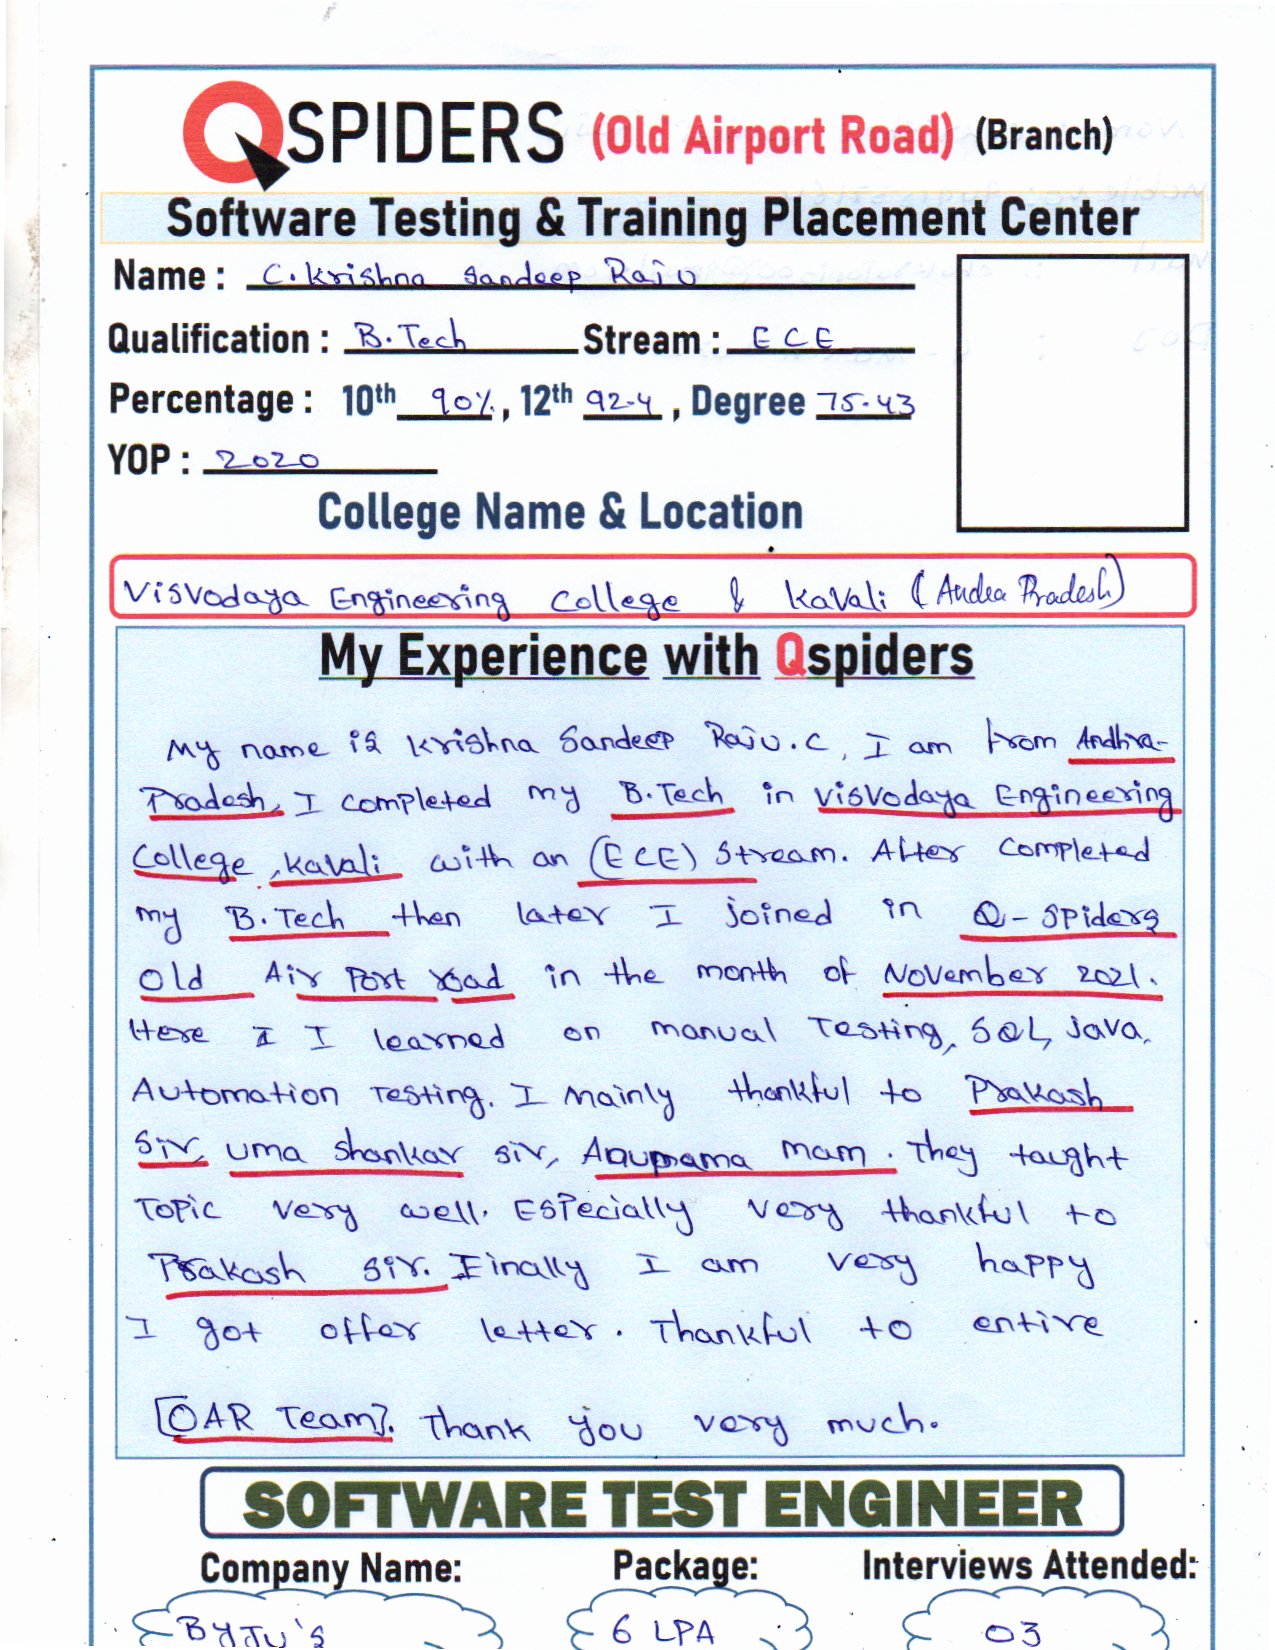 QSPIDERS (Old Airport Road) (Branch)
Software Testing & Training Placement Center
Name : C. Krishna Sandeep Raju
Qualification : B.Tech Stream : ECE
Percentage : 10th 90%, 12th 92.4, Degree 75.43
YOP : 2020
College Name & Location
Visvodaya Engineering College & Kavali (Andra Pradesh)
My Experience with Qspiders
My name is Krishna Sandeep Raju.C, I am from Andhra-
Pradesh, I completed my B.Tech in Visvodaya Engineering
College, Kavali with an (ECE) Stream. After completed
my B.Tech then later I joined in Q-Spiders
Old Air Port road in the month of November 2021.
Here I I learned on manual Testing, SQL, Java,
Automation Testing. I mainly thankful to Prakash
Sir, Uma Shankar sir, Anupmama mam. They taught
Topic very well. Especially very thankful to
Prakash Sir. Finally I am very happy
I got offer letter. Thankful to entire
[OAR Team]. Thank you very much.
SOFTWARE TEST ENGINEER
Company Name: Package: Interviews Attended:
BYJU's 6 LPA 03